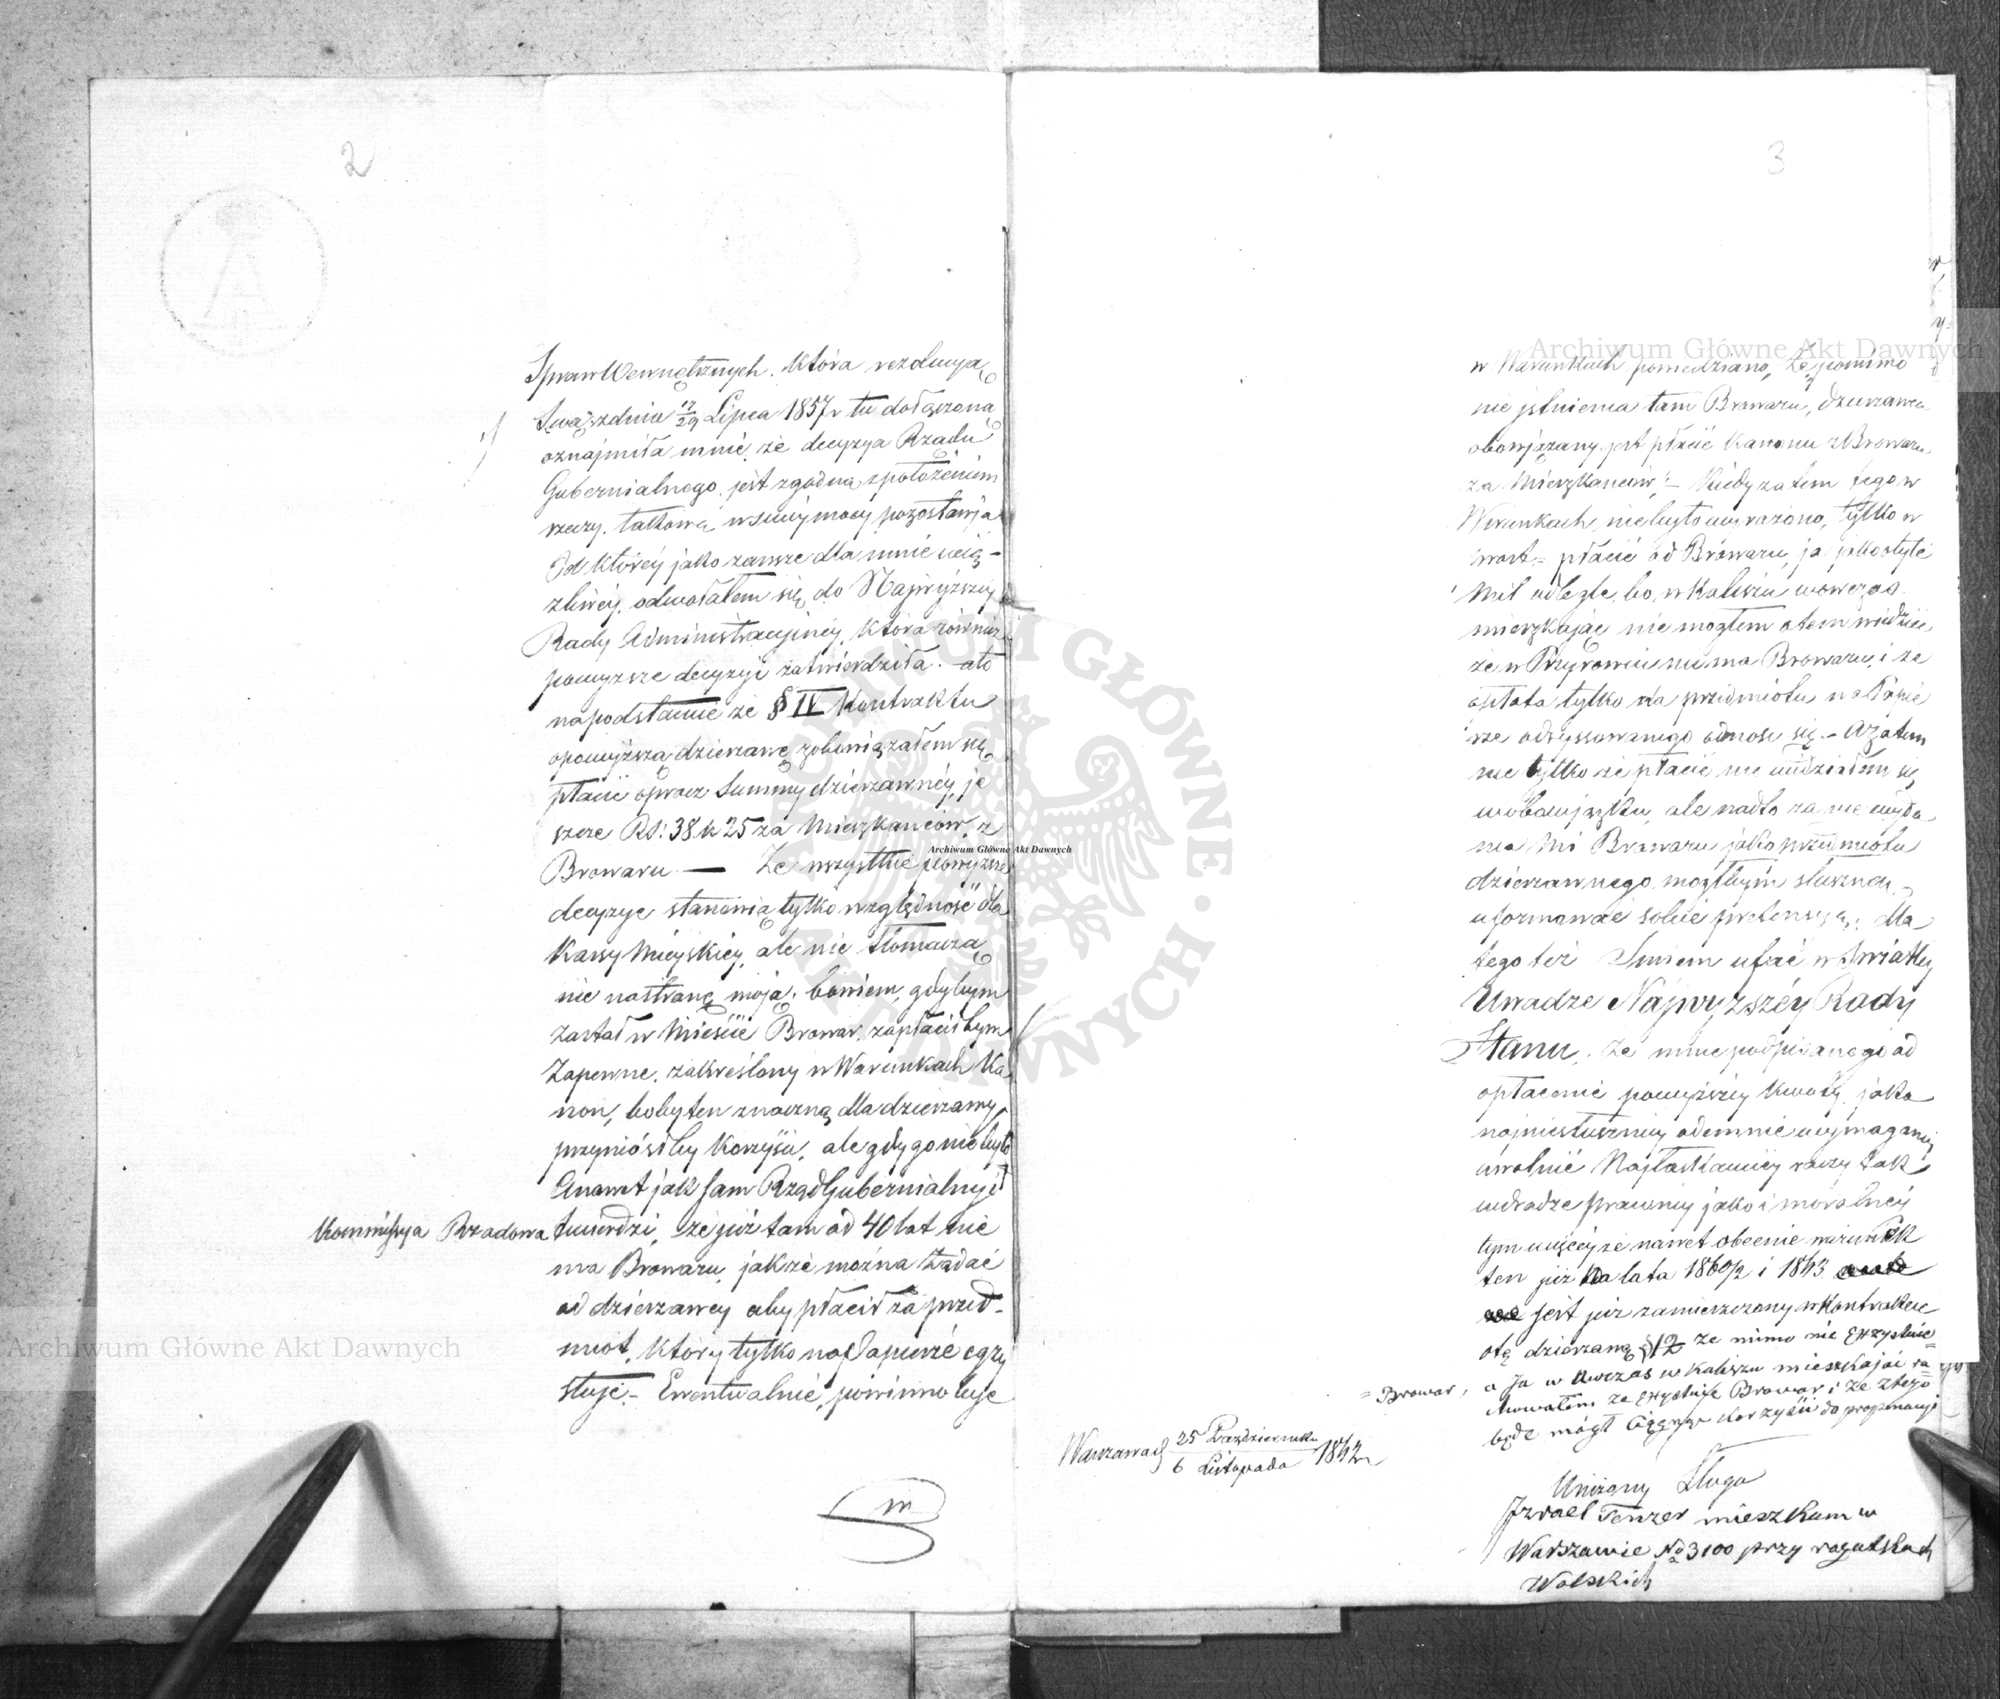 2
Spraw Wewnętrznych. która rezolucyą
swą zdnia 17/29 Lipca 1857 r tu dołączoną
oznajmiła mnie, że decyzya Rządu
Gubernialnego, jest zgodną z położeniem
rzeczy, takową w swey mocy pozostawia
Od którey jako zawsze dla mnie ucią-
żliwey, odwołałem się do Najwyższey
Rady Administracyjney, która również
powyższe decyzje zatwierdziła. – a to
na podstawie że § IV Kontraktu
o powyższą dzierżawę zobowiązałem się
płacić oprócz Summy dzierżawnéy, je
szcze Rs: 38 k 25 za Mieszkańców, z
Browaru — Że wszystkie powyższe
decyzye stanowią tylko względność dla
Kassy Mieyskiey, ale nie tłomaczą
nic na stronę moją. bowiem, gdybym
zastał w Mieście Browar, zapłaciłbym
Zapewne, zakreślony w Warunkach Ka
non, boby ten znaczną dla dzierżawy
przyniósł by Korzyść, ale gdy go nie było
Anawet jak sam Rząd Gubernialny i
Kommissya Rządowa twierdzi, że już tam od 40 lat nie
ma Browaru, jakże można żądać
od dzierżawcy aby płacił za przed-
miot, który tylko na Papierze egzy
stuje. – Ewentualnie, powinno być
3
w Warunkach powiedziano, Że pomimo
nie istnienia tam Browaru, dzierżawca
obowiązany jest płacić Kanonu z Browaru
za Mieszkańców; – Kiedy zatem tego w
Warunkach, nie było wyrażono, tylko w
prost – płacić od Browaru, ja jako o tyle
Mil odległe, bo w Kaliszu wówczas
mieszkając nie mogłem o tem wiedzieć
że w Przyrowie nie ma Browaru, i że
opłata tylko do przedmiotu na Papie
rze odryssowanego odnosi się. – A zatem
nie tylko że płacić nie
w obowiązku, ale nadto za nie wyda
nie Mi Browaru jako przedmiotu
dzierżawnego, mógłbym słuszną
uformować sobie pretensyą; dla
tego też Śmiem ufać w światłey
Uwadze Najwyższéy Rady
Stanu, że mnie podpisanego od
opłacenie powyższey Kwoty, jako
najniesłuszniey odemnie wymaganey
uwolnić Najłaskawiey raczy tak
w drodze prawney jako i moralney
tym więcey że nawet obecnie warunek
ten już na lata 1860/2 i 1863
jest już zamieszczony w Kontrakcie
o tę dzierżawę § 12 że mimo nie Exzystuie
= Browar, a Ja w ówczas w Kaliszu mieszkając ra=
chowałem że exystuje Browar i że z tego
będe mógł Ciągnąć korzyści do propinacyi
Warszawa d 25 Października / 6 Listopada 1862 r
Uniżony Sługa
Izrael Tenzer mieszkam w
Warszawie No 3100 przy rogatkach
Wolskich
Archiwum Główne Akt Dawnych
Archiwum Główne Akt Dawnych
Archiwum Główne Akt Dawnych
ARCHIWUM GŁÓWNE • AKT DAWNYCH •